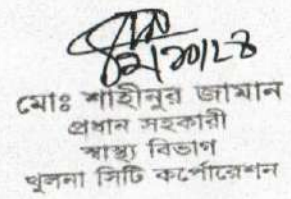 মোঃ শাহীনুর জামান
প্রধান সহকারী
স্বাস্থ্য বিভাগ
খুলনা সিটি কর্পোরেশন